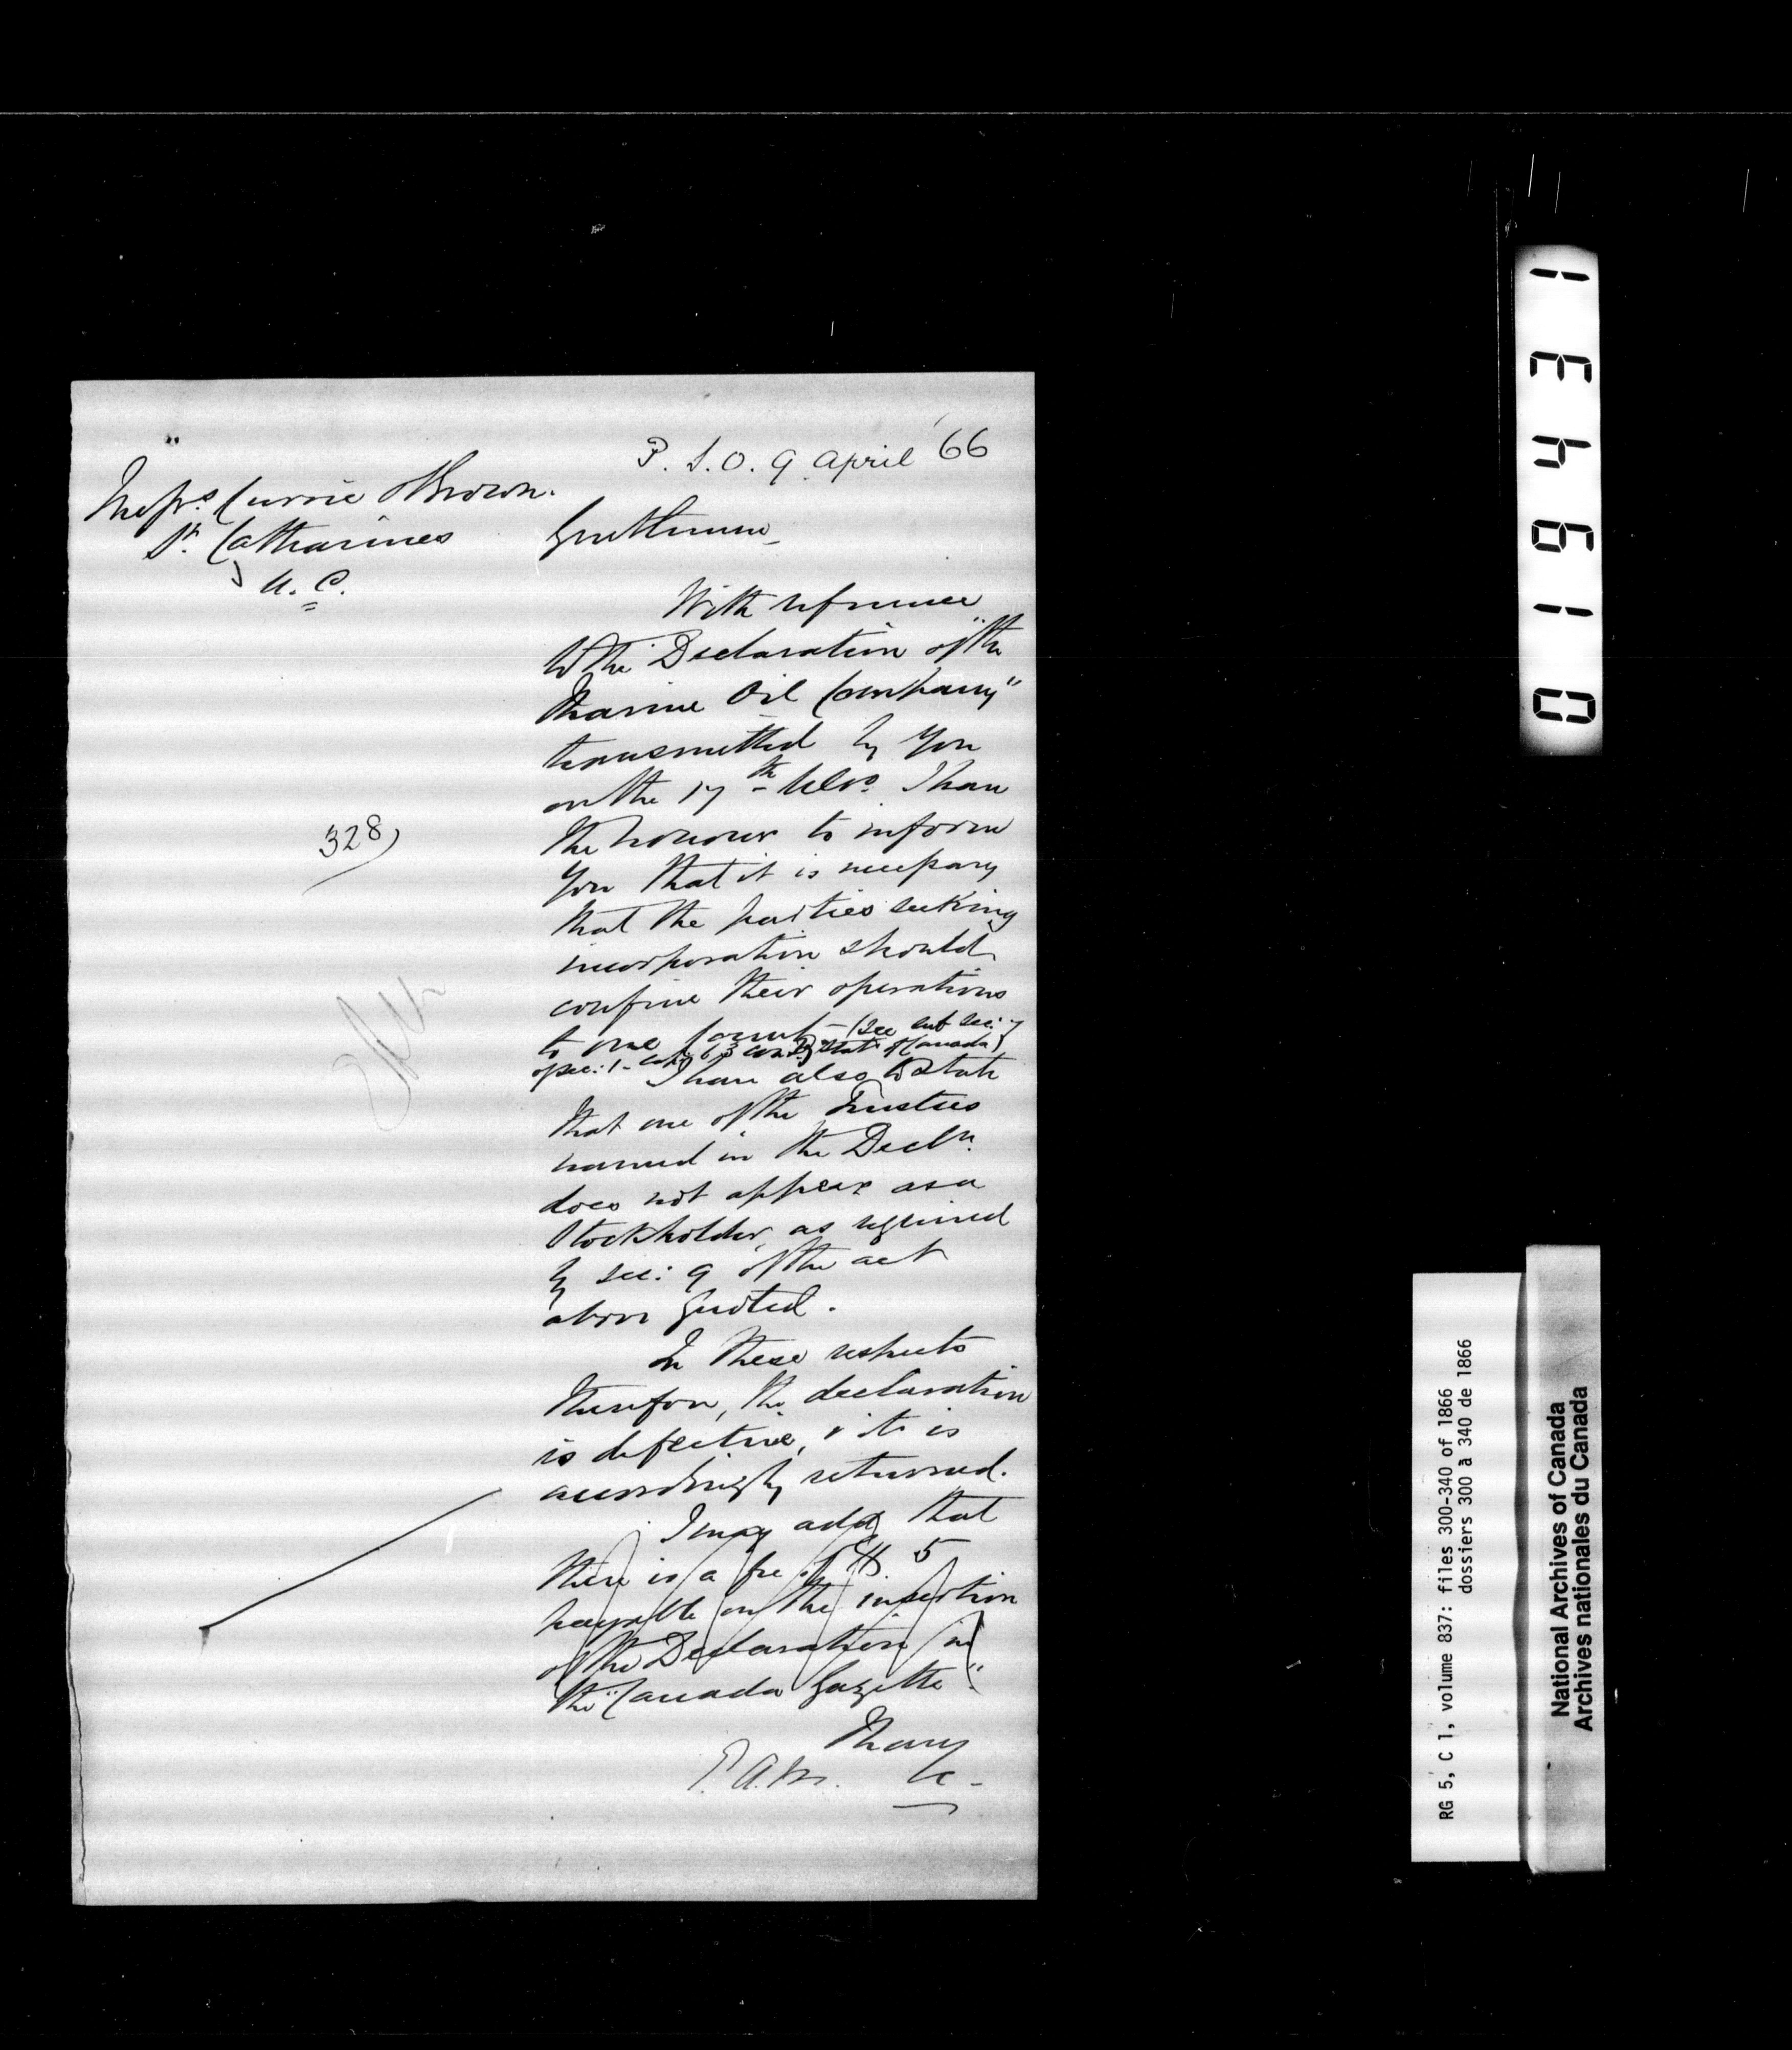 P. S. O. 9 April '66
Messrs. Currie & Brown.
St. Catharines
U. C.
Gentlemen
With reference
to the Declaration of "the
Marine Oil Company"
transmitted by you
on the 17th Ulto. I have
the honour to inform
you that it is necessary
that the parties seeking
incorporation should
confine their operations
to one County (See sub sec: 7
of sec: 1 - cap 63 Con. Stats of Canada)
I have also to state
that one of the Trustees
named in the Decln.
does not appear as a
Stockholder, as required
by sec: 9 of the act
above quoted.
In these respects
therefore, the declaration
is defective, & it is
accordingly returned.
I may add that
there is a fee of $ 5
payable on the insertion
of the Declaration in
the "Canada Gazette".
I have
&c -
E. A. M.
328
019431
RG 5, C 1, volume 837: files 300-340 of 1866
dossiers 300 à 340 de 1866
National Archives of Canada
Archives nationales du Canada